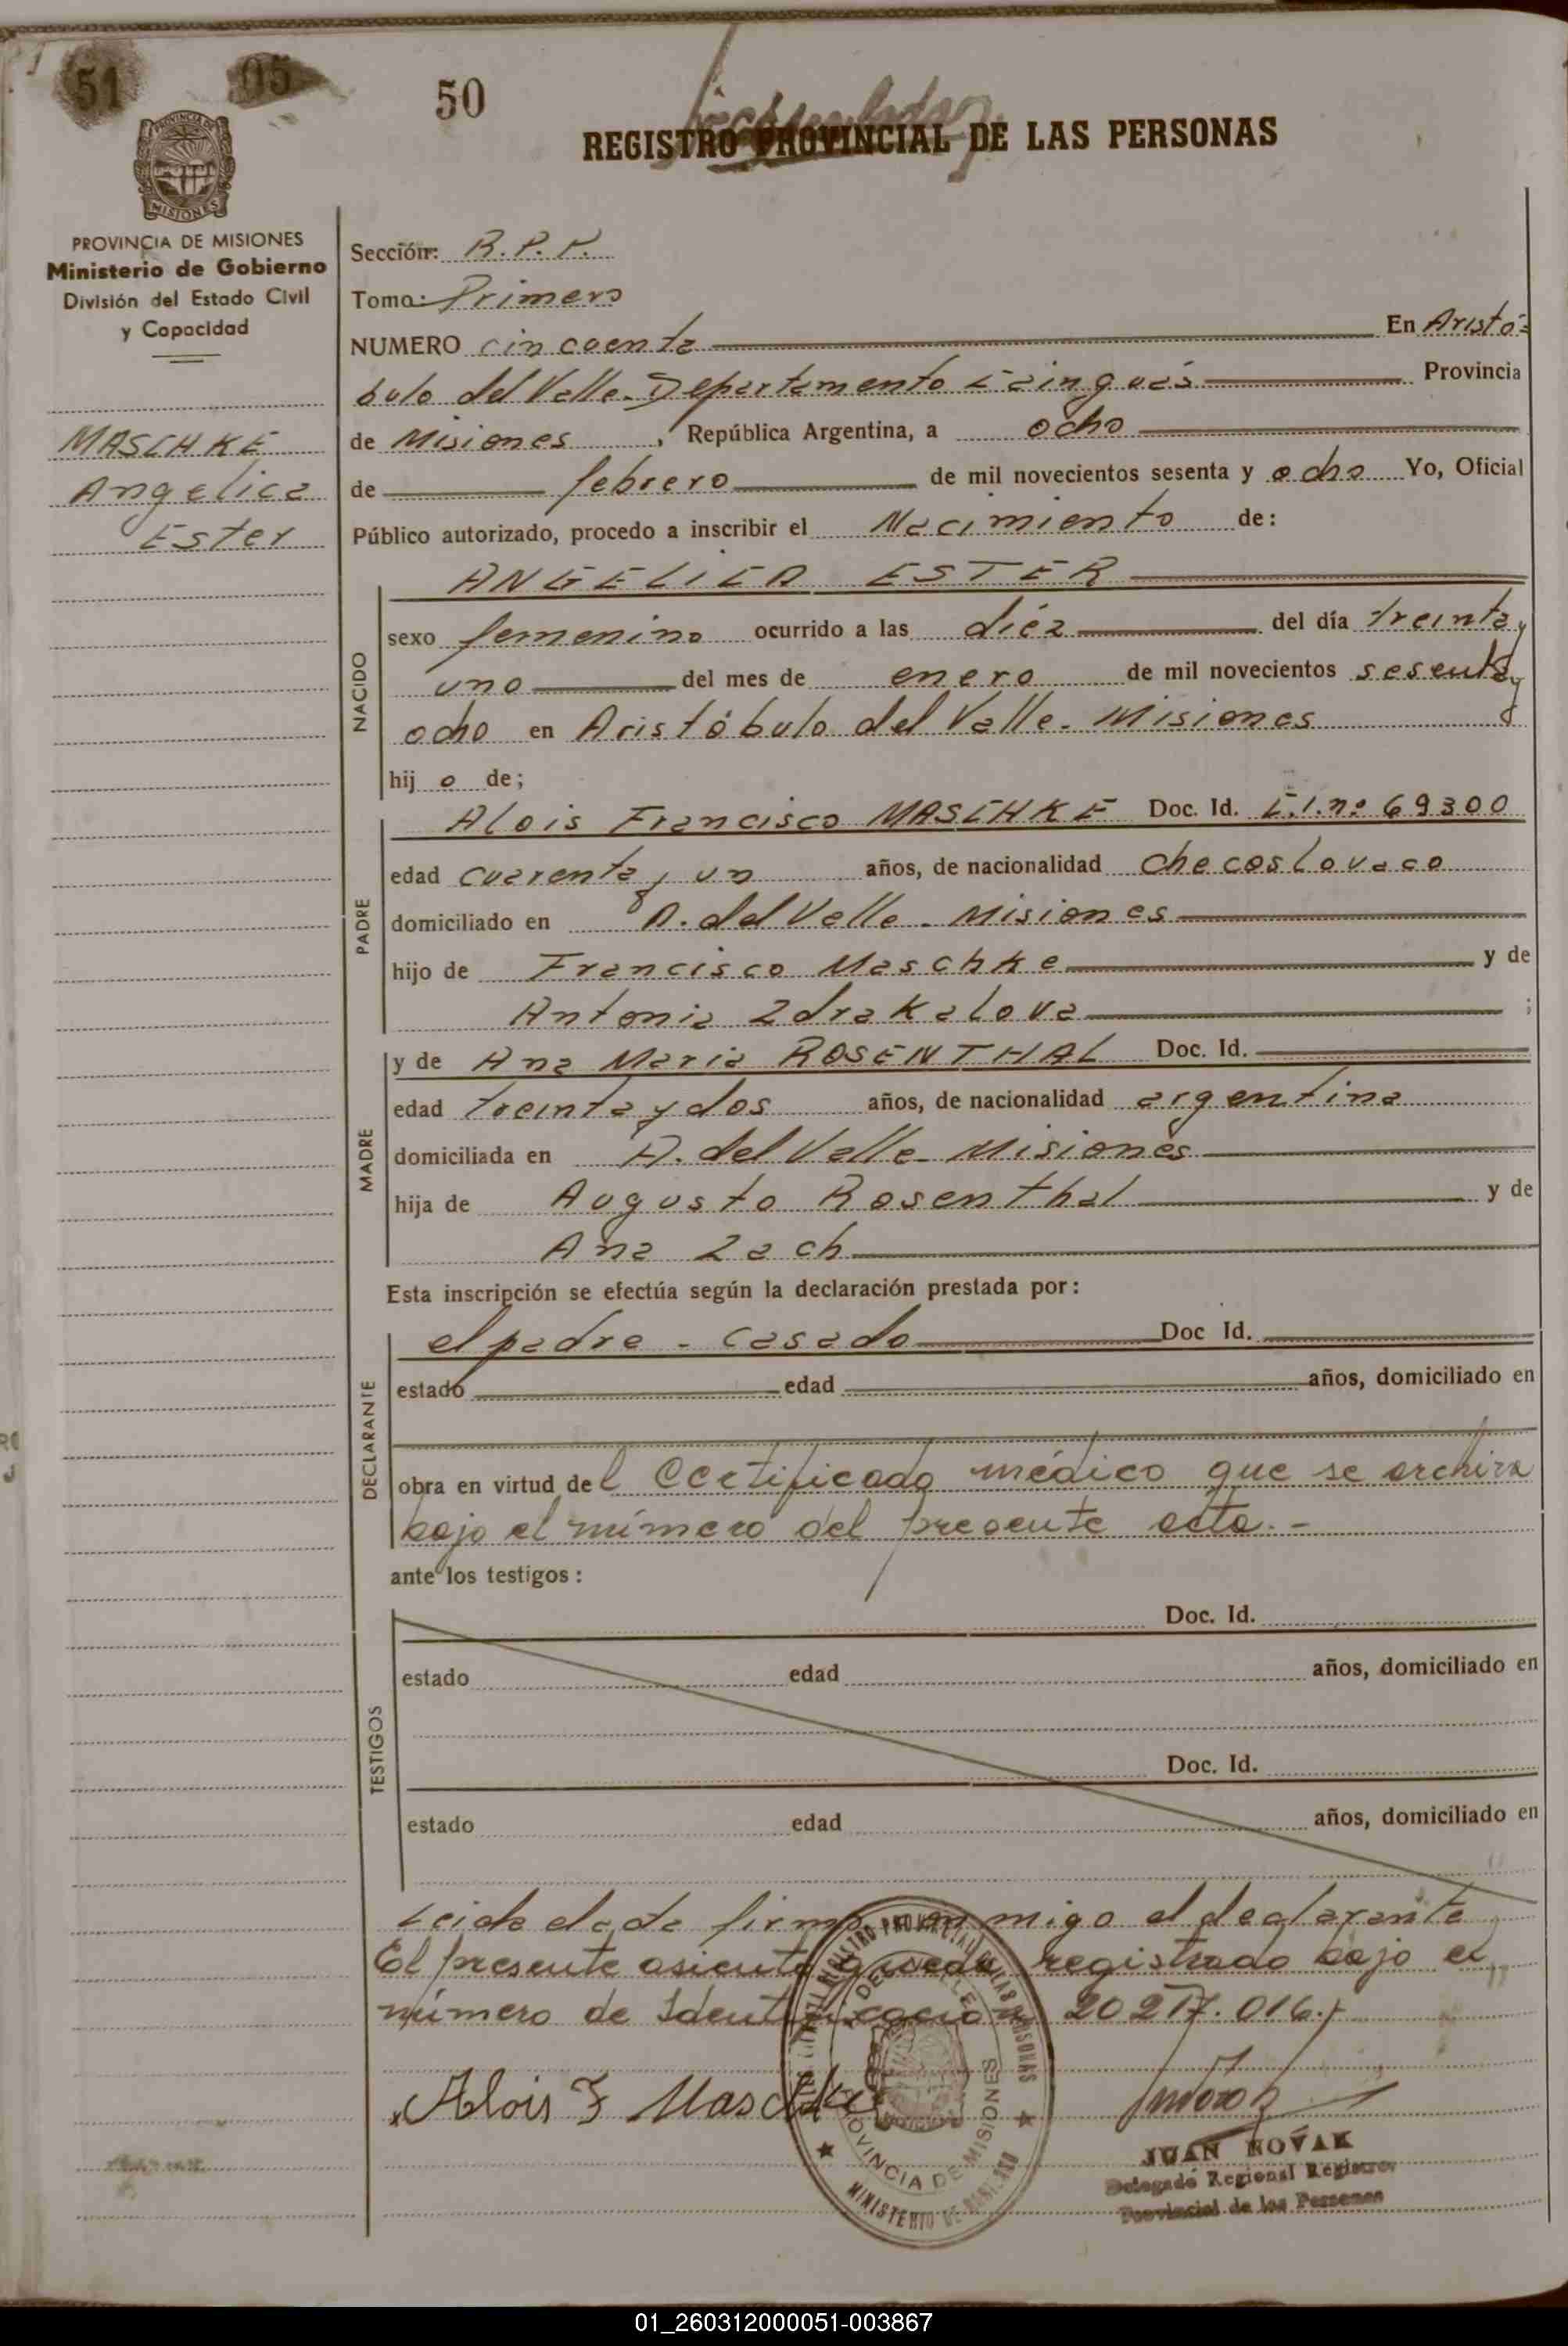 51
05
50
REGISTRO PROVINCIAL DE LAS PERSONAS
PROVINCIA DE MISIONES
Ministerio de Gobierno
División del Estado Civil
y Capacidad
MASCHKE
Angelica
Ester
Sección: R.P.P.
Tomo: Primero
NUMERO cincuenta En Aristó-
bulo del Valle - Departamento Cainguás Provincia
de Misiones, República Argentina, a ocho
de febrero de mil novecientos sesenta y ocho Yo, Oficial
Público autorizado, procedo a inscribir el Nacimiento de:
NACIDO
ANGELICA ESTER
sexo femenino ocurrido a las diéz del día treinta y
uno del mes de enero de mil novecientos sesenta y
ocho en Aristóbulo del Valle - Misiones
hij o de;
PADRE
Alois Francisco MASCHKE Doc. Id. C.I. nº 69300
edad cuarenta y un años, de nacionalidad checoslovaco
domiciliado en A. del Valle - Misiones
hijo de Francisco Maschke y de
Antonia Zdrakalova ;
MADRE
y de Ana Maria ROSENTHAL Doc. Id.
edad treinta y dos años, de nacionalidad argentina
domiciliada en A. del Valle - Misiones
hija de Augusto Rosenthal y de
Ana Zach
Esta inscripción se efectúa según la declaración prestada por:
DECLARANTE
el padre - casado Doc Id.
estado edad años, domiciliado en
obra en virtud del Certificado médico que se archiva
bajo el número del presente acta.-
ante los testigos:
TESTIGOS
Doc. Id.
estado edad años, domiciliado en
Doc. Id.
estado edad años, domiciliado en
Leida el acta firma conmigo el declarante
El presente asiento queda registrado bajo el
número de Identificación 20.217.016.-
Alois F Maschke
PROVINCIA DE MISIONES
JUAN NOVAK
Delegado Regional Registro
Provincial de las Personas
01_260312000051-003867